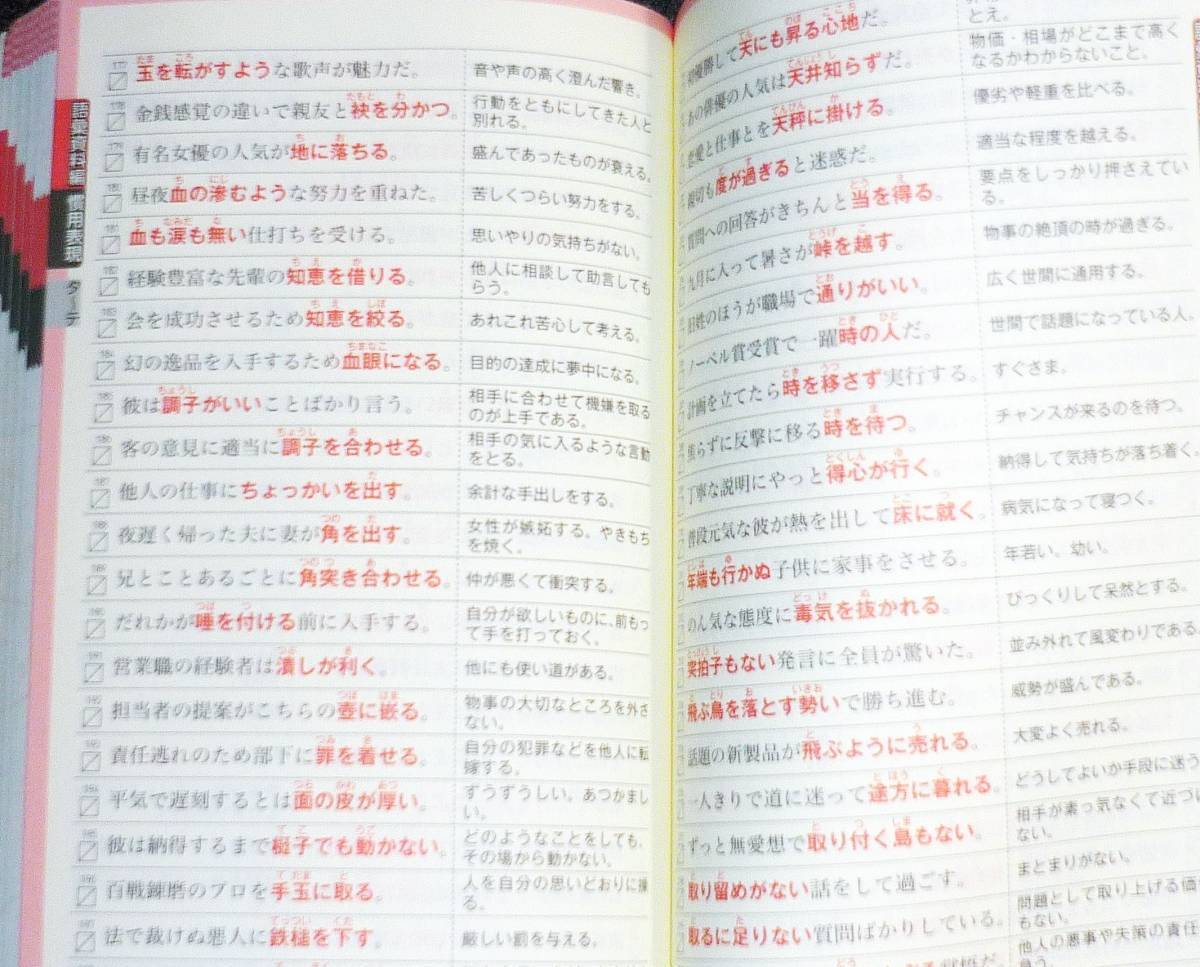 語彙資料編
慣用表現
タ〜テ
玉を転がすような歌声が魅力だ。
音や声の高く澄んだ響き。
金銭感覚の違いで親友と袂を分かつ。
行動をともにしてきた人と
別れる。
有名女優の人気が地に落ちる。
盛んであったものが衰える。
昼夜血の滲むような努力を重ねた。
苦しくつらい努力をする。
血も涙も無い仕打ちを受ける。
思いやりの気持ちがない。
経験豊富な先輩の知恵を借りる。
他人に相談して助言しても
らう。
会を成功させるため知恵を絞る。
あれこれ苦心して考える。
幻の逸品を入手するため血眼になる。
目的の達成に夢中になる。
彼は調子がいいことばかり言う。
相手に合わせて機嫌を取る
のが上手である。
客の意見に適当に調子を合わせる。
相手の気に入るような言動
をとる。
他人の仕事にちょっかいを出す。
余計な手出しをする。
夜遅く帰った夫に妻が角を出す。
女性が嫉妬する。やきもち
を焼く。
兄とことあるごとに角突き合わせる。
仲が悪くて衝突する。
だれかが唾を付ける前に入手する。
自分が欲しいものに、前もっ
て手を打っておく。
営業職の経験者は潰しが利く。
他にも使い道がある。
担当者の提案がこちらの壺に嵌る。
物事の大切なところを外さ
ない。
責任逃れのため部下に罪を着せる。
自分の犯罪などを他人に転
嫁する。
平気で遅刻するとは面の皮が厚い。
ずうずうしい。あつかまし
い。
彼は納得するまで梃子でも動かない。
どのようなことをしても、
その場から動かない。
百戦錬磨のプロを手玉に取る。
人を自分の思いどおりに操
る。
法で裁けぬ悪人に鉄槌を下す。
厳しい罰を与える。
初優勝して天にも昇る心地だ。
とえ。
あの俳優の人気は天井知らずだ。
物価・相場がどこまで高く
なるかわからないこと。
恋愛と仕事とを天秤に掛ける。
優劣や軽重を比べる。
親切も度が過ぎると迷惑だ。
適当な程度を越える。
質問への回答がきちんと当を得る。
要点をしっかり押さえてい
る。
九月に入って暑さが峠を越す。
物事の絶頂の時が過ぎる。
旧姓のほうが職場で通りがいい。
広く世間に通用する。
ノーベル賞受賞で一躍時の人だ。
世間で話題になっている人。
計画を立てたら時を移さず実行する。
すぐさま。
焦らずに反撃に移る時を待つ。
チャンスが来るのを待つ。
丁寧な説明にやっと得心が行く。
納得して気持ちが落ち着く。
普段元気な彼が熱を出して床に就く。
病気になって寝つく。
年端も行かぬ子供に家事をさせる。
年若い。幼い。
のん気な態度に毒気を抜かれる。
びっくりして呆然とする。
突拍子もない発言に全員が驚いた。
並み外れて風変わりである
飛ぶ鳥を落とす勢いで勝ち進む。
威勢が盛んである。
話題の新製品が飛ぶように売れる。
大変よく売れる。
一人きりで道に迷って途方に暮れる。
どうしてよいか手段に迷う
ずっと無愛想で取り付く島もない。
相手が素っ気なくて近づけ
ない。
取り留めがない話をして過ごす。
まとまりがない。
取るに足りない質問ばかりしている。
問題として取り上げる価
もない。
他人の悪事や失策の責任
負う。